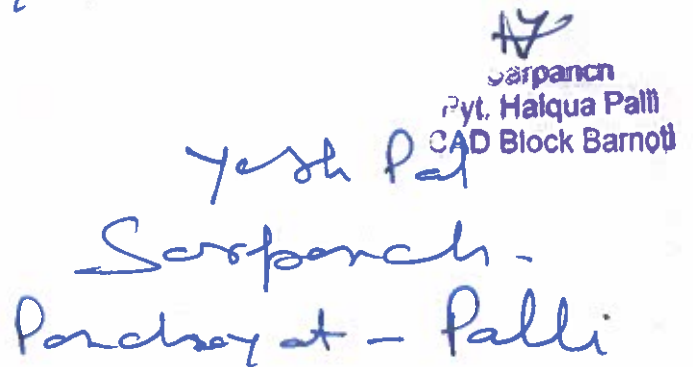 Sarpanch
Pyt. Halqua Palli
CAD Block Barnoti
Yash Pal
Sarpanch-
Panchayat - Palli